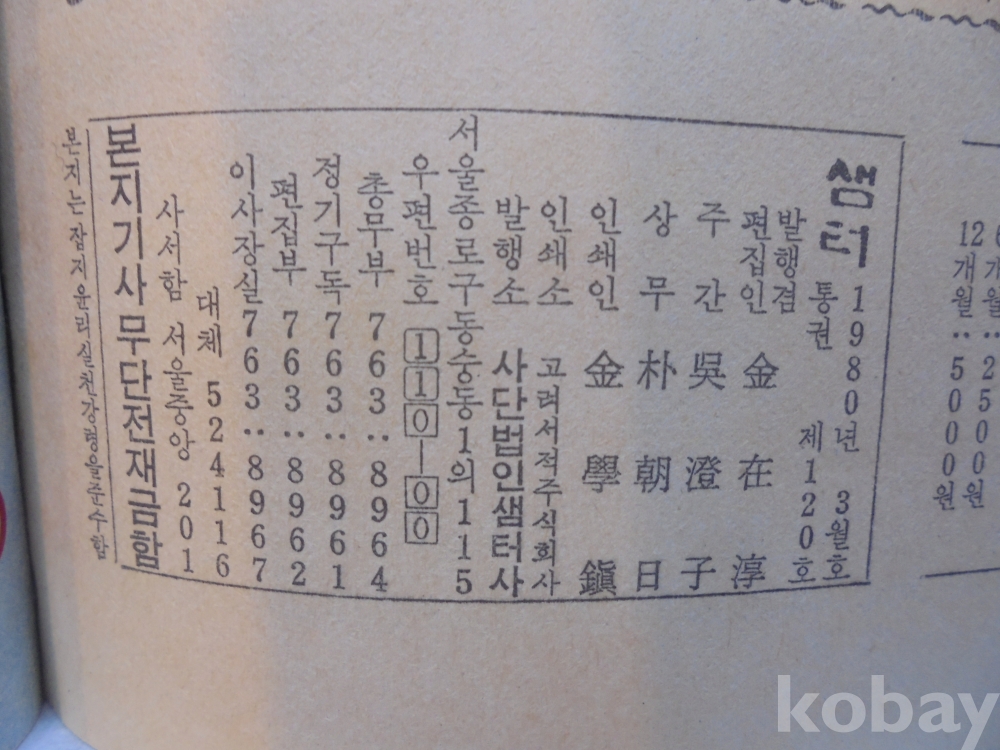 샘터 1980년 3월호
통권 제120호
발행겸
편집인 金在淳
주간 吳澄子
상무 朴朝日
인쇄인 金學鎭
인쇄소 고려서적주식회사
발행소 사단법인샘터사
서울종로구동숭동1의115
우편번호 110-00
총무부 763:8964
정기구독 763:8961
편집부 763:8962
이사장실 763:8967
대체 524116
사서함 서울중앙 201
본지기사 무단전재금함
본지는잡지윤리실천강령을준수함
개월: 2500원
12개월: 5000원
kobay